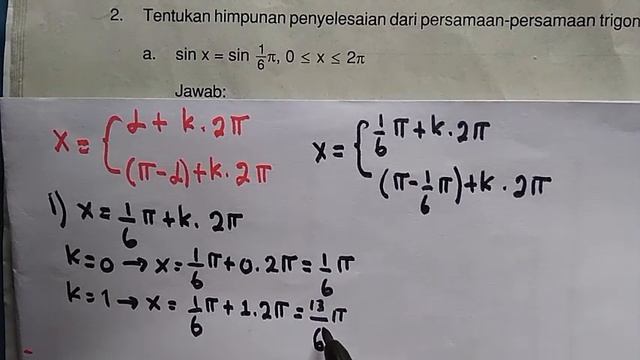 2. Tentukan himpunan penyelesaian dari persamaan-persamaan trigon
a. sin x = sin 1/6 π, 0 ≤ x ≤ 2π
Jawab:
x = { α + k . 2π
(π - α) + k . 2π
x = { 1/6 π + k . 2π
(π - 1/6 π) + k . 2π
1) x = 1/6 π + k . 2π
k = 0 → x = 1/6 π + 0 . 2π = 1/6 π
k = 1 → x = 1/6 π + 1 . 2π = 13/6 π